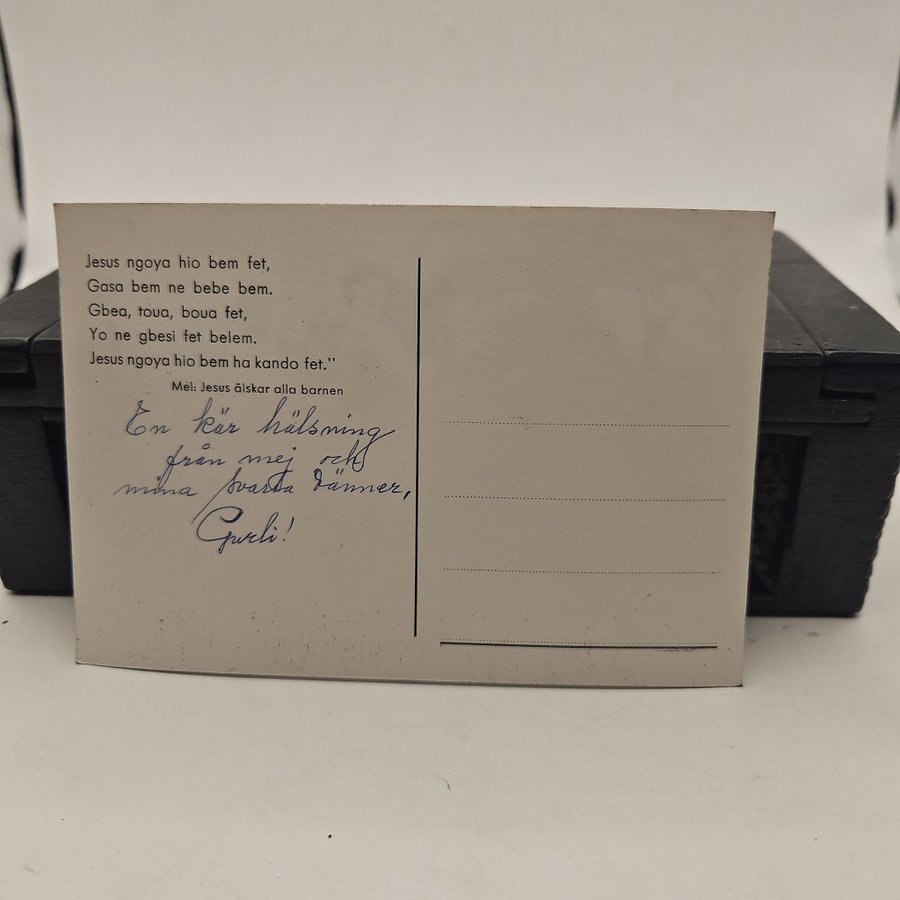 Jesus ngoya hio bem fet,
Gasa bem ne bebe bem.
Gbea, toua, boua fet,
Yo ne gbesi fet belem.
Jesus ngoya hio bem ha kando fet."
Mel: Jesus älskar alla barnen
En kär hälsning
från mej och
mina svarta vänner,
Gurli!